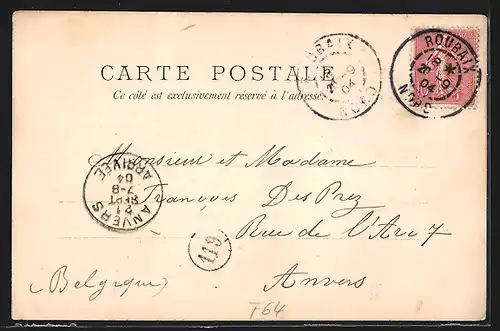 ROUBAIX
NORD
ROUBAIX
NORD
CARTE POSTALE
Ce côté est exclusivement réservé à l'adresse
Monsieur et Madame
François Des Prez
Rue de l'Arc 7
Anvers
(Belgique)
ANVERS
21
SEPT
7-8
04
ARRIVÉE
119
T64